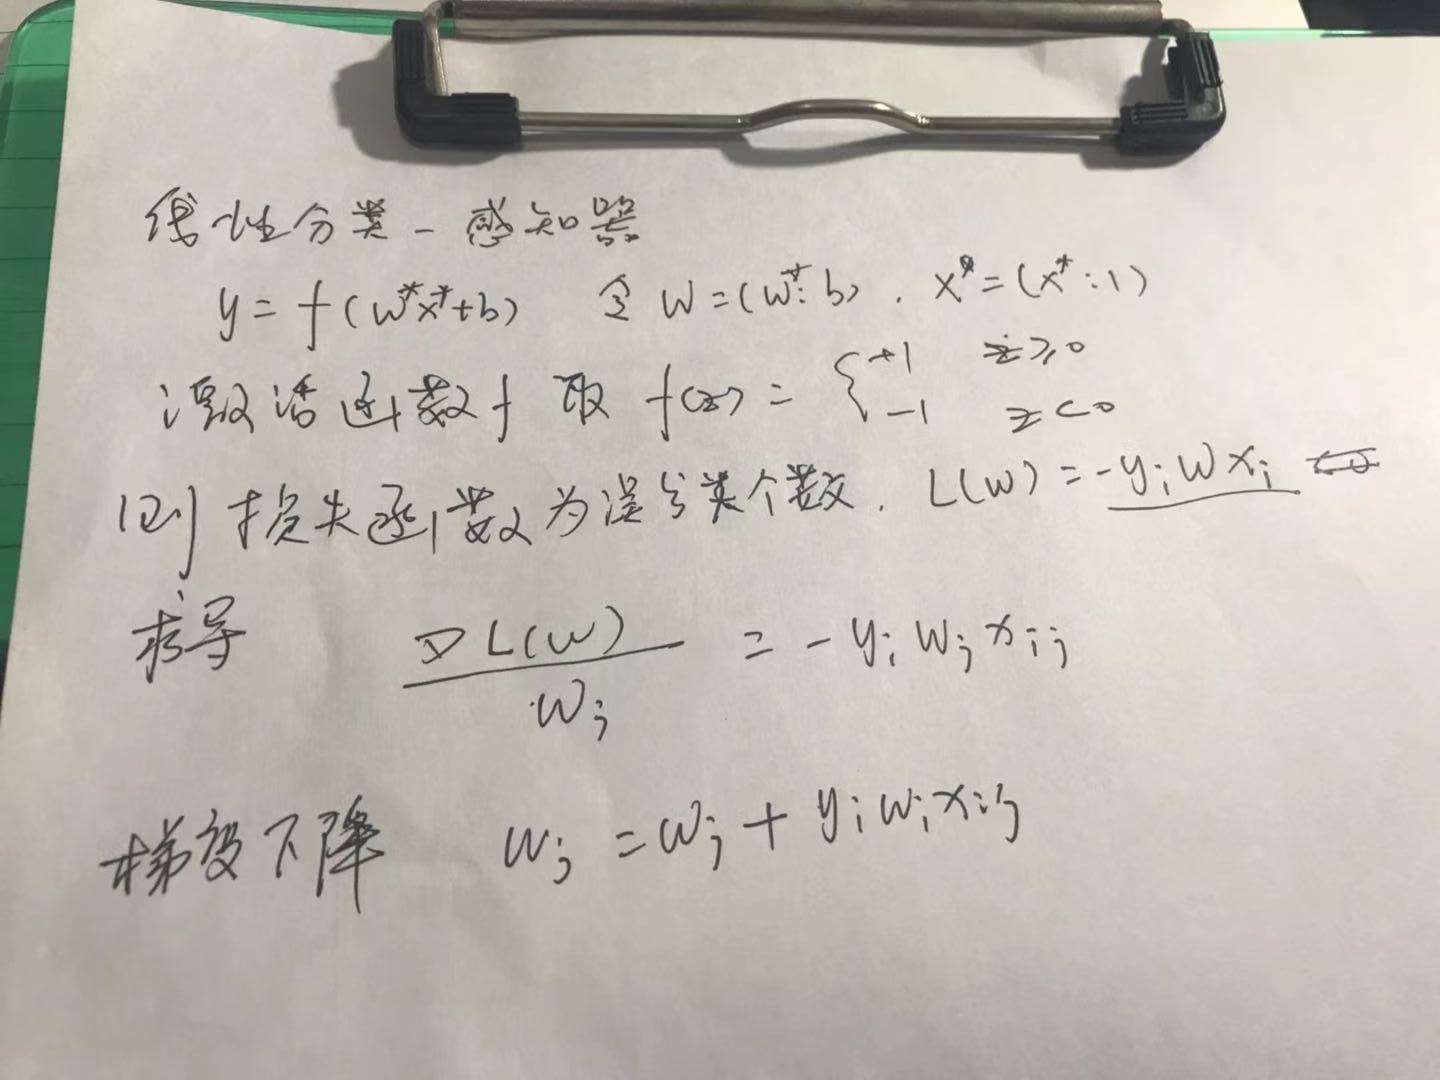 线性分类-感知器
y=f(w*x*+b) 令 W=(w*:b). x*=(x*:1)
激活函数f 取 f(z)= { +1 z≥0
-1 z<0
则损失函数为误分类个数. L(w)=-yᵢWxᵢ
求导 ∇L(w)/wⱼ = -yᵢwⱼxᵢⱼ
梯度下降 wⱼ=wⱼ+yᵢwᵢxᵢⱼ